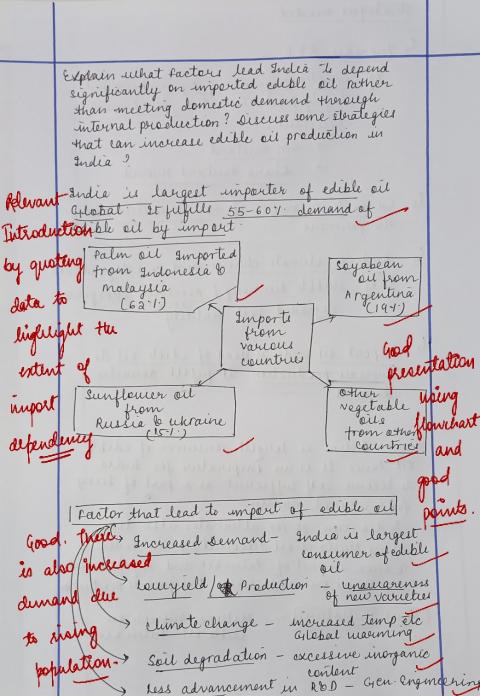 Explain what factors lead India to depend
significantly on imported edible oil rather
than meeting domestic demand through
internal production? Discuss some strategies
that can increase edible oil production in
India ?
India is largest importer of edible oil
Global. It fulfills 55-60% demand of
Edible oil by import.
Relevant
Introduction
by quoting
data to
highlight the
extent of
import
dependency
Palm oil Imported
from Indonesia &
malaysia
(62%)
Soyabean
oil from
Argentina
(19%)
Imports
from
various
countries
Sunflower oil
from
Russia & ukraine
(15%)
Other
vegetable
oils
from other
countries
Good
presentation
using
flowchart
and
good
points.
Factor that lead to import of edible oil
Increased Demand - India is largest
consumer of edible
oil
Low yield / Production - unawareness
of new varieties
Climate change - increased temp etc
Global warming
Soil degradation - excessive inorganic
content
Less advancement in R&D - Gen. Engineering
Good. There
is also increased
demand due
to rising
population.